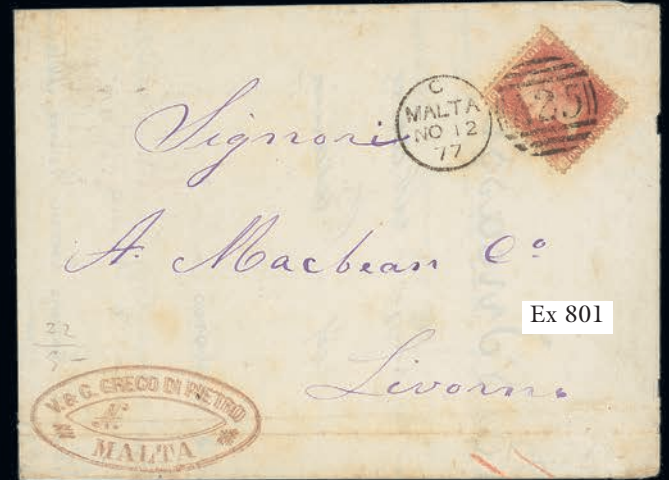 C
MALTA
NO 12
77
25
Signori
A. Macbean Co
Ex 801
Livorno
22
V. & C. GRECO DI PIETRO
MALTA